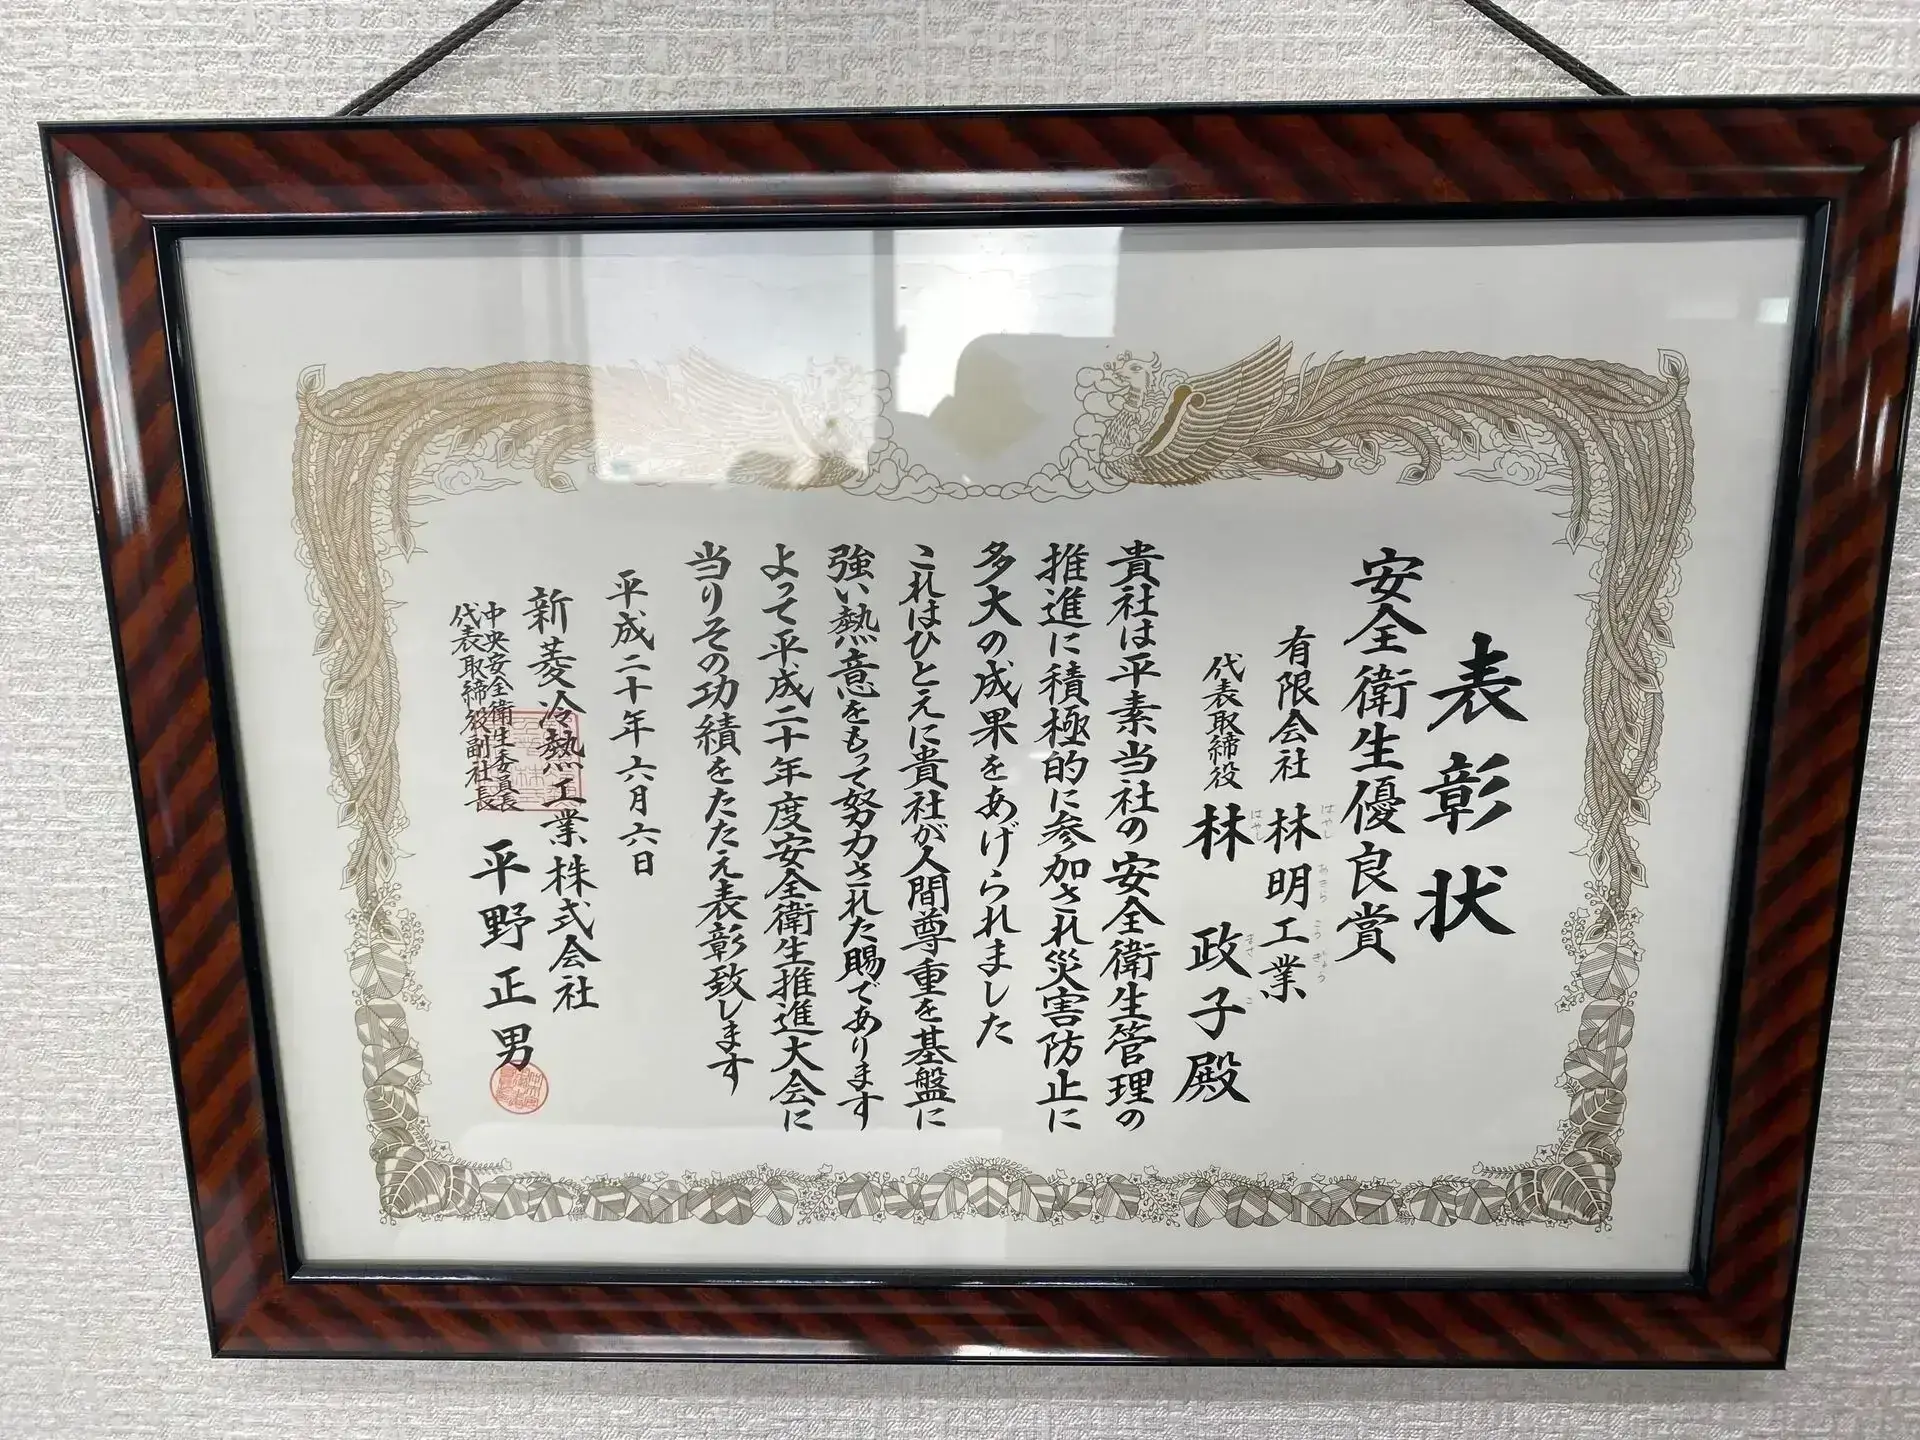 表彰状
安全衛生優良賞
有限会社 林明工業
はやし あきら こうぎょう
代表取締役 林 政子殿
はやし まさ こ
貴社は平素当社の安全衛生管理の
推進に積極的に参加され災害防止に
多大の成果をあげられました
これはひとえに貴社が人間尊重を基盤に
強い熱意をもって努力された賜であります
よって平成二十年度安全衛生推進大会に
当りその功績をたたえ表彰致します
平成二十年六月六日
新菱冷熱工業株式会社
中央安全衛生委員長
代表取締役副社長
平野正男